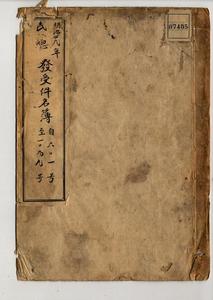 明治八年
民總
發受件名簿
自六〇一号
至一〇九九号
07405